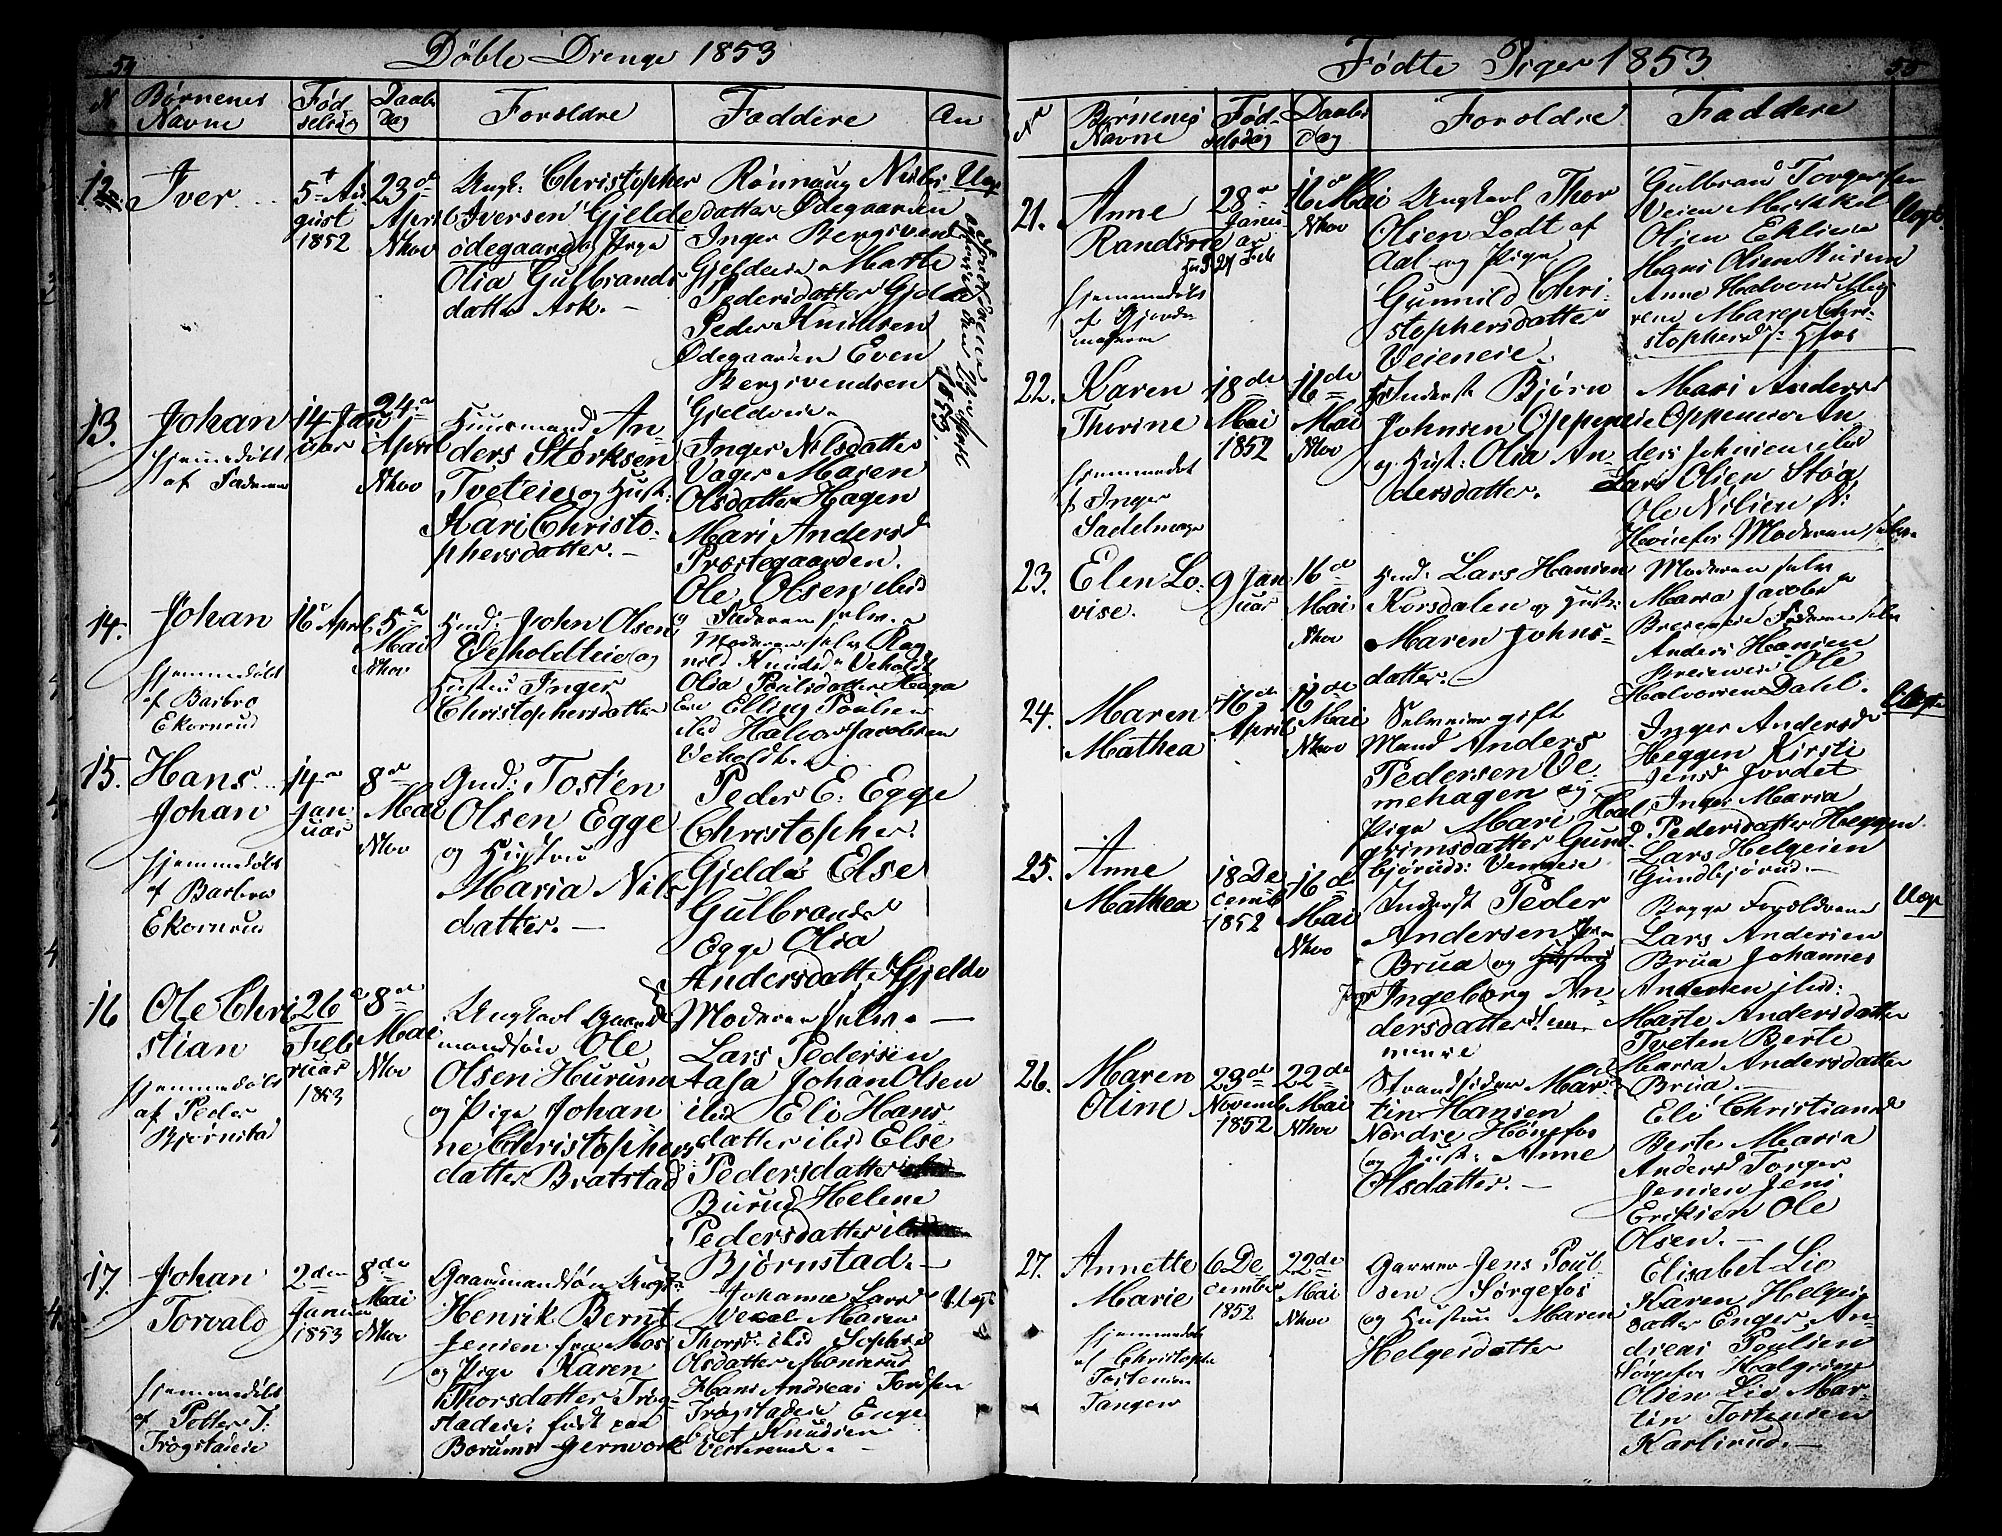 54
Döbte Drenge 1853
N
Børnenes
Navne
Fød-
selsdag
Daabs
dag
Foroldre
Faddere
An
12.
Iver
5t Au
gust
1852
23de
April
Nkov
Ungk: Christopher
Iversen Gjelde
ødegaarden Pige
Olia Gulbrands
datter Ask.
Rønnaug Niels
datter Ødegaarden
Inger Bergsvend
Gjeldeie Marte
Pedersdatter Gjelde
Peder Knudsen
Ødegaarden Even
Bergsvendsen
Gjeldeeie
Uegt
1853.
13.
Johan
hjemmedøbt
af Faderen
14 Jan
uar
24de
April
Nkov
Huusmand An-
ders Størksen
Tveteie og Hust:
Kari Christo-
phersdatter.
Inger Nilsdatter
Vager Maren
Olsdatter Hagen
Mari Andersd
Præstegaarden.
Ole Olsen ibid
og Faderen selv.
14.
Johan
hjemmedøbt
af Barbro
Ekornrud
16 April
5te
Mai
Nkov
Hmd: John Olsen
Veholdteie og
Hustru Inger
Christophersdatter
Moderen selv Rag
nild Knudsd Veholdt
Olia Poulsdatter Haga
Elling Poulsen
ibid Halvor Jacobsen
Veholdt.
15.
Hans
Johan
hjemmedøbt
af Barbro
Ekornrud
14de
Jan
uar
8de
Mai
Nkov
Gmd: Tosten
Olsen Egge
og Hustru
Maria Nils
datter.
Peder E. Egge
Christopher
Gjelde Else
Gulbrandsd
Egge Olia
Andersdatter Gjelde
16
Ole Chri
stian
hjemmedøbt
af Peder
Bjørnstad
26de
Feb
ruar
1853
8de
Mai
Nkov
Ungkarl Gaard
mandsøn Ole
Olsen Hurum
og Pige Johan
ne Christophers
datter Bratstad
Moderen selv.
Lars Pedersen
Aasa Johan Olsen
ibid Eli Hans
datter ibid Else
Pedersdatter
Burud Helene
Pedersdatter
Bjørnstad.
17.
Johan
Torvald
hjemmedøbt
af Petter T:
Trøgstadeie
2den
Januar
1853
8de
Mai
Nkov
Gaardmandsøn Ungk:
Henrik Bernt
Jensen fra Mos
og Pige Karen
Thorsdatter Trøg-
stadeie: født paa
Borums Jernverk
Johanne Larsd
Maren
Thorsd: ibid Sophie
Olsdatter Monserud
Hans Andreas Tordsen
Trøgstadeie Enge
bret Knudsen
Vesterenn.
Uegt
55
Fødte Piger 1853
No
Børnenes
Navne
Fød-
selsdag
Daabs
dag
Foroldre
Faddere
21.
Anne
Randine
hjemmedøbt
af Gjorde
moderen
28de
Janu
ar
16de Mai
Nkov
Ungkarl Thor
Olsen Lodt af
Aal og Pige
Gunnild Chri-
stophersdatter
Veieneie
Gulbrand Torgersen
Veien Mikkel
Olsen Eklien
Hans Olsen
Anne Halvorsd
Maren Chri-
stophersd:
Uegt
22.
Karen
Thorine
hjemmedøbt
af Inger
Sadelmager
18de
Mai
1852
16de
Mai
Nkov
Inderst Bjørn
Johnsen Oppeneie
og Hust: Olia An-
dersdatter.
Mari Andersd
Oppeneie An
ders Johnsen ibid
Lars Olsen
Ole Nilsen
Hønefos Moderen selv
23.
Elen Lo-
vise.
9 Jan
uar
16de
Mai
Nkov
Hmd: Lars Hansen
Korsdalen og Hust:
Maren Johns-
datter.
Moderen selv
Maria Jacobsd
Breieneie Faderen selv
Anders Hansen
Breieneie Ole
Halvorsen Dahl.
24.
Maren
Mathea
16de
April
16de
Mai
Nkov
Selveier gift
Mand Anders
Pedersen Ve-
mehagen og
Pige Mari Hal
grimsdatter Gund-
bjørud: Vemeeie
Inger Andersd
Heggen Kirsti
Jensd Jordet
Inger Maria
Pedersdatter Heggen
Lars Helgeien
Gundbjørud.
Uegt
25.
Anne
Mathea
18 De
cemb
1852
16de
Mai
Nkov
Inderst Peder
Andersen
Brua og
Pige Ingeborg An-
dersdatter
Begge Foroldrene
Lars Andersen
Brua Johannes
Andersen ibid:
Marte Andersdatter
Tveten Berte
Maria Andersdatter
Brua.
Uegt
26.
Maren
Oline
23de
Novemb
1852
22de
Mai
Nkov
Strandsidder Mar-
tin Hansen
Nordre Hønefos
og Hust: Anne
Olsdatter.
Eli Christiansd
Berte Maria
Andersd Torger
Jensen Jens
Eriksen Ole
Olsen.
27.
Annette
Marie
hjemmedøbt
af Christopher
Tostensen
Tangen
6 De
cember
1852
22de
Mai
Nkov
Garver Jens Poul-
sen Sørgefos
og Hustru Maren
Helgesdatter
Elisabet Lie
Karen Helges
datter Enger An-
dreas Poulsen
Sørgefos Halgrim
Olsen Lie Mar-
tin Tostensen
Karlsrud.